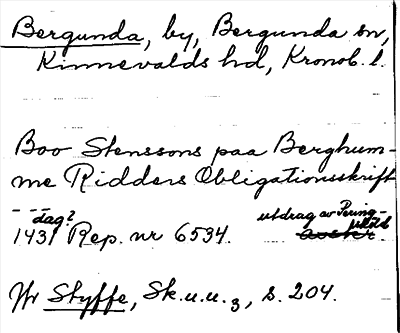 Bergunda, by, Bergunda sn,
Kinnevalds hd, Kronob. l.
Boo Stenssons paa Berghum-
me Ridders Obligationsskrift
- - - dag?
1431 Rep. nr 6534. utdrag av Pering-
skiöld
Jfr Styffe, Sk.u.u.3, s. 204.